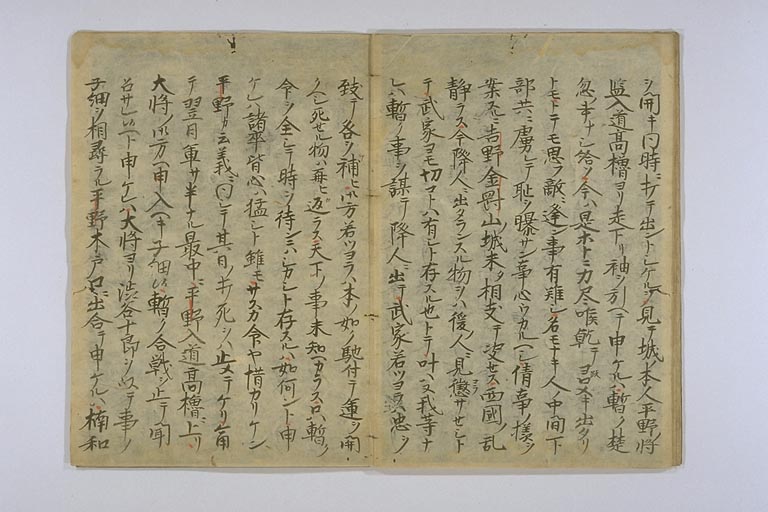 シ開キ同時ニ打テ出ントシケルヲ見テ城ノ本人平野将
監入道高櫓ヨリ走下リ袖ヲ引ヘテ申ケルハ暫ノ楚
忽ナシ給ソ今ハ是ホトニ力尽喉乾テヨロメキ出タリ
トモトテモ思フ敵ニ逢事有難シ名モナキ人ノ中間下
部共ニ虜レテ恥ヲ曝サン事心ウカルヘシ倩事ノ様ヲ
案スルニ吉野金剛山城未タ相支テ逆セス西國ノ乱
静ラス今降人ニ出タランスル物ヲハ後人ニ見懲サセシト
テ武家ヨモ切コトハ有シト存スル也トテモ叶ハヌ我等ナ
レハ暫ノ事ヲ謀テ降人ニ出テ武家若ツヨクハ忠ヲ
致テ各ヲ補ヒ御方若ツヨラハ本ノ如ク馳付テ運ヲ開
クヘシ死せル物ハ再ヒ返ラス天下ノ事未知ヘカラスロハ暫ノ
令ヲ全シテ時ヲ待ンニハシカシト存スルハ如何ント申
ケレハ諸卒皆心ハ猛シト雖モサスカ令ヤ惜カリケン
平野カ云義ニ同シテ其日ノ打死ヲハ止メテケリ角
テ翌日軍サ半ナル最中ニ平野入道高櫓ニ上リ
大将ノ御方ヘ申入ヘキ子細ハ暫ノ合戦ヲ止テ聞
召サレ候ヘト申ケレハ大将ヨリ渋谷十郎ヲ以テ事ノ
子細ヲ相尋ラル平野木戸口ニ出合テ申ケルハ楠和